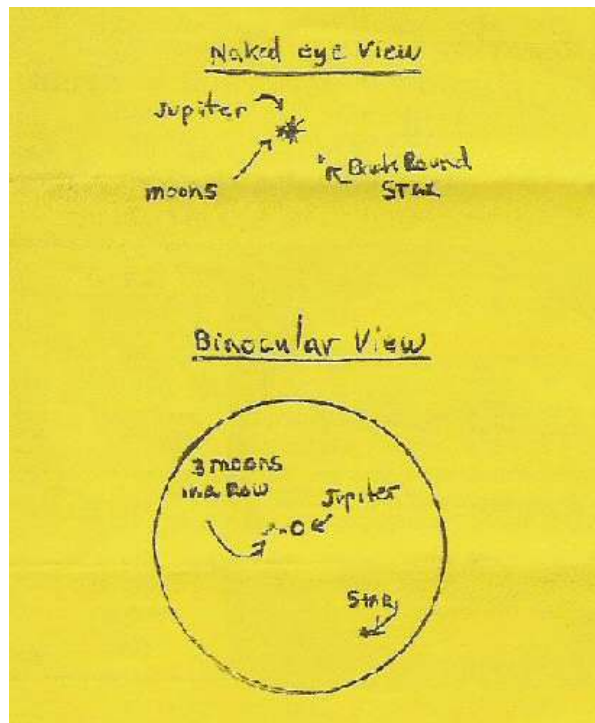 Naked eye View
Jupiter
moons
BackRound
STAR
Binocular View
3 moons
in a Row
Jupiter
Star